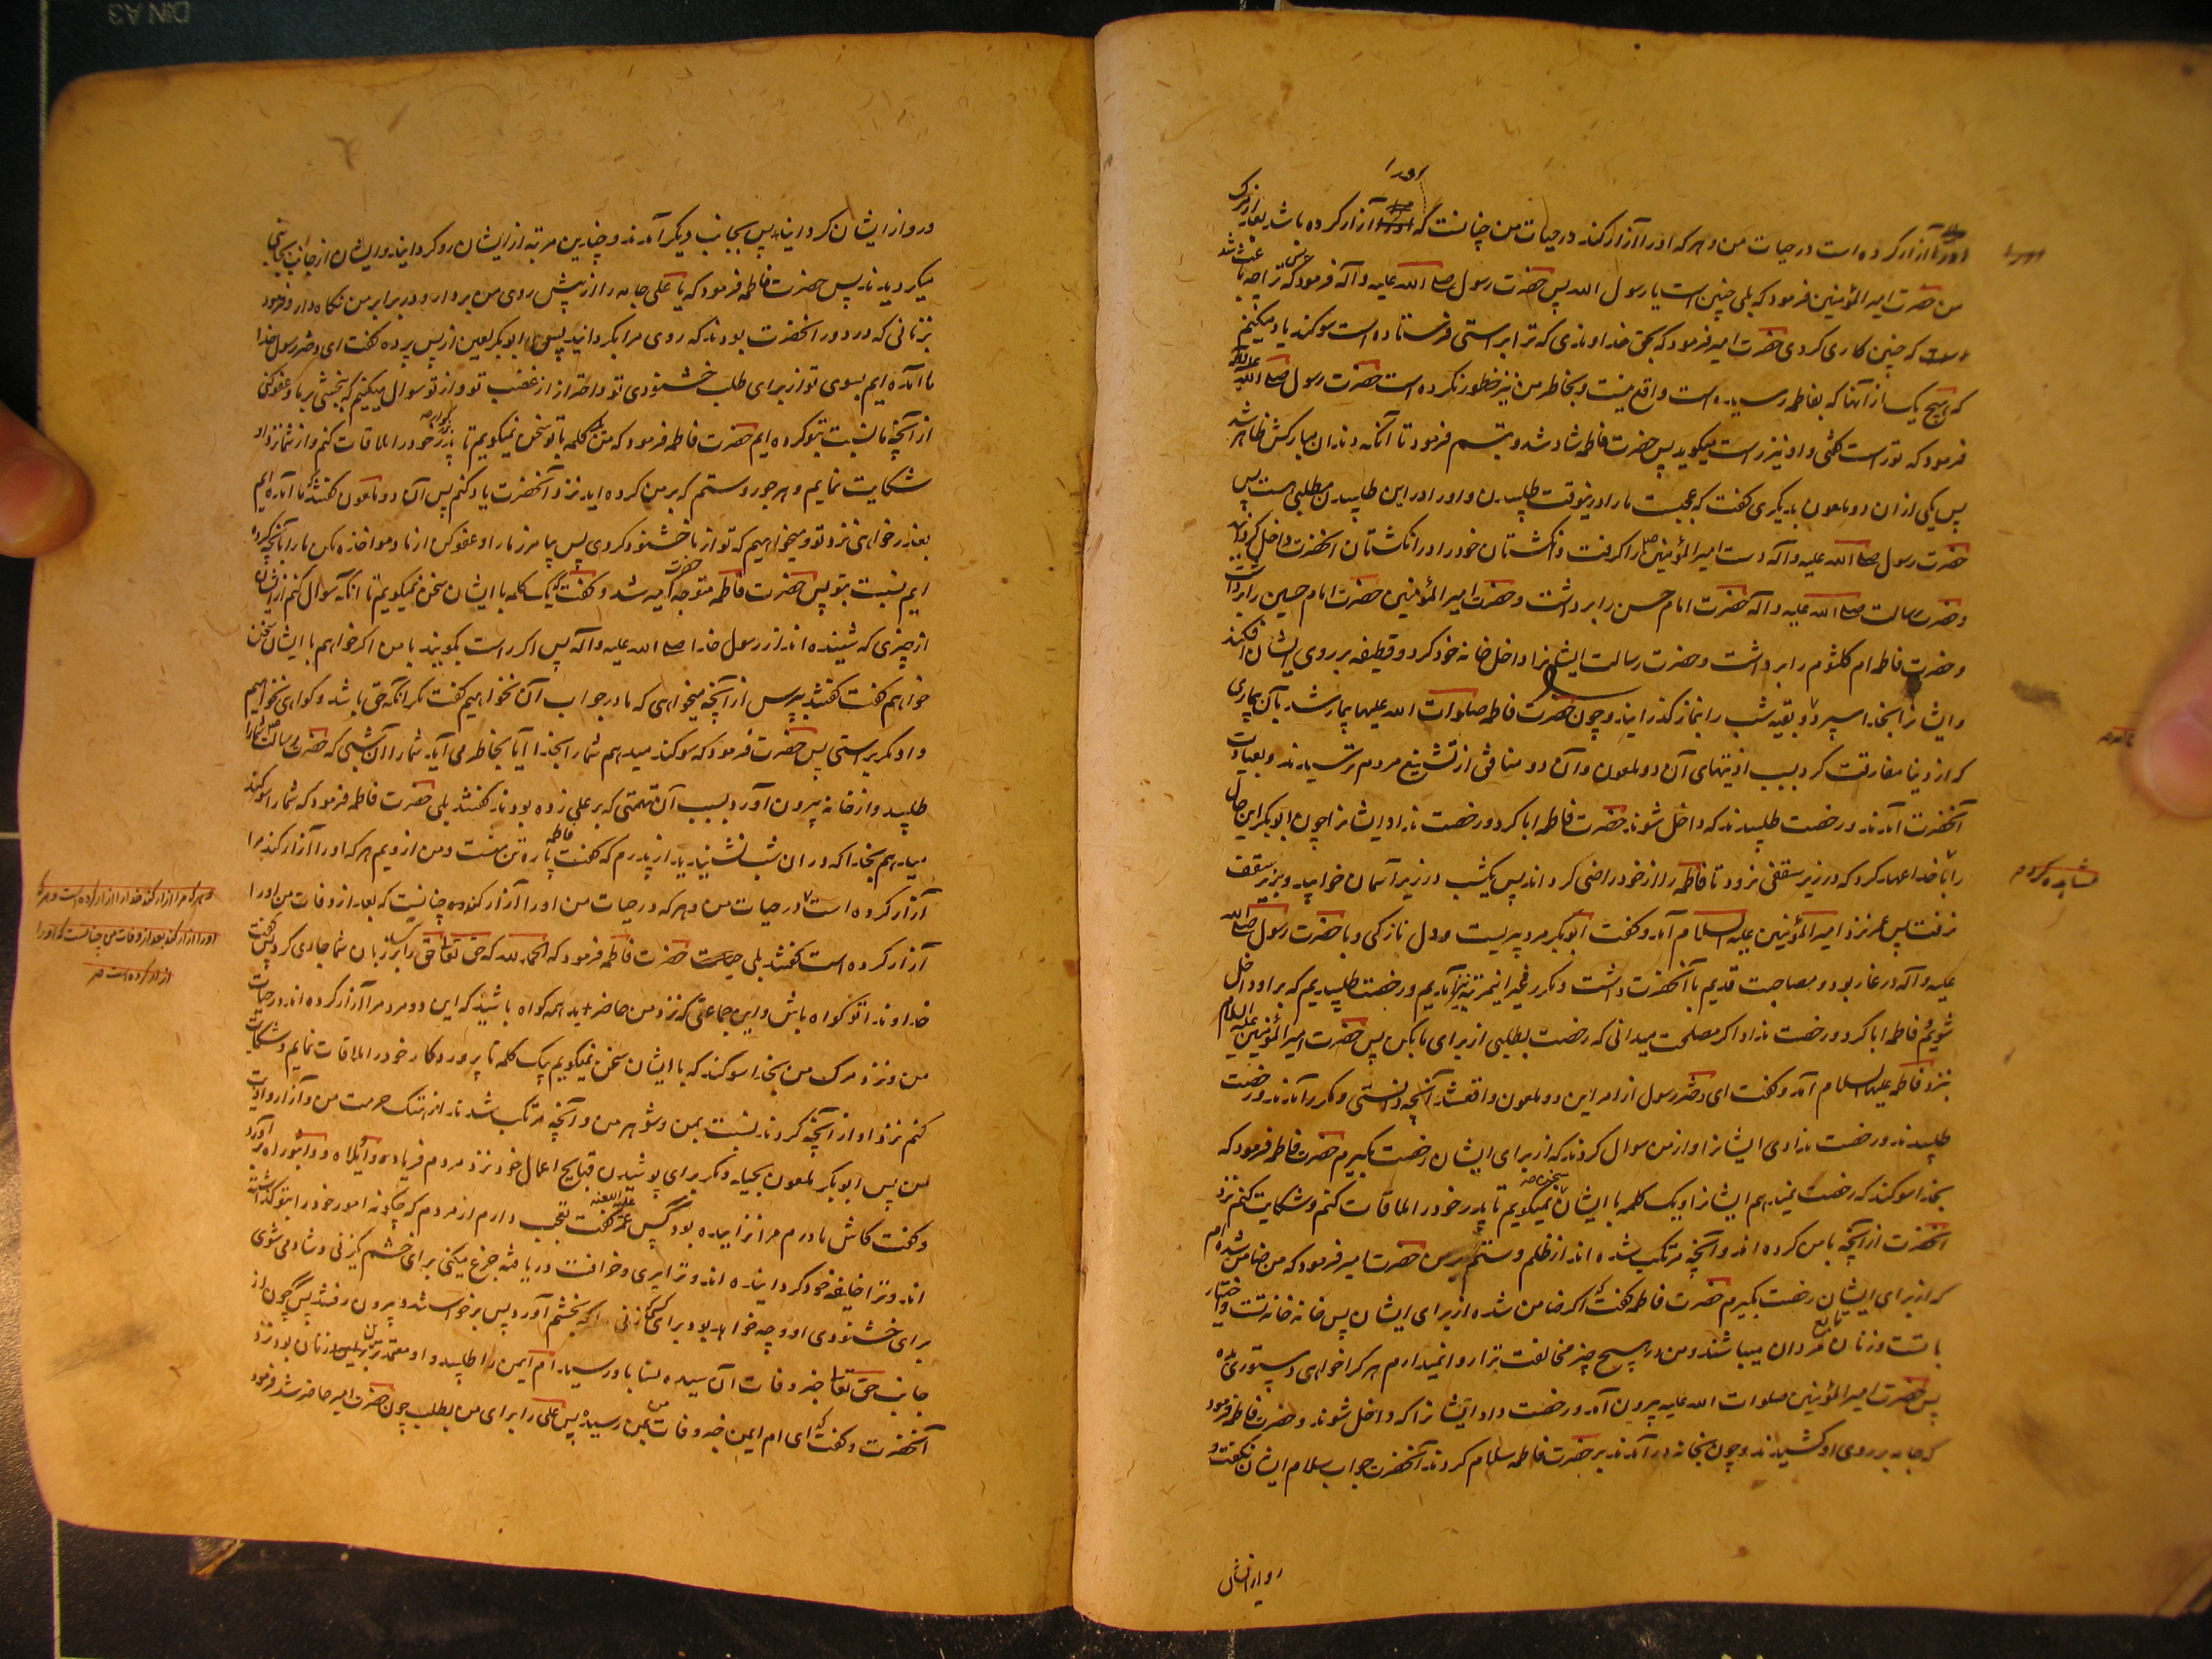 اورا آزار کرده است در حیات من و هر که اورا آزار کند در حیات من چنانست که اورا آزار کرده باشد بعد از مرک
من حضرت امیر المؤمنین فرمود که بلی چنین است یا رسول الله پس حضرت رسول صلی الله علیه و آله فرمود که ترا چه باعث شد
که چنین کاری کردی حضرت امیر فرمود که بحق خداوندی که ترا براستی فرستاده است سوکند یاد میکنم
که هیچ یک از آنها که بفاطمه رسیده است واقع نیست و بخاطر من نیز خطور نکرده است حضرت رسول صلی الله علیه و آله
فرمود که تو راست کفتی و او نیز راست میکوید پس حضرت فاطمه شاد شد و تبسم فرمود تا آنکه دندان مبارکش ظاهر شد
پس یکی از ان دو ملعون بدیکری کفت که عجبست مارا درین وقت طلبیدن و اورا در این طلبیدن مطلبی هست پس
حضرت رسول صلی الله علیه و آله دست امیر المؤمنین را کرفت و انکشتان خود را در انکشتان آنحضرت داخل کردانید
و حضرت رسالت صلی الله علیه و آله حضرت امام حسن را برداشت و حضرت امیر المؤمنین حضرت امام حسین را برداشت
و حضرت فاطمه ام کلثوم را برداشت و حضرت رسالت ایشانرا داخل خانه خود کرد و قطیفه بر روی ایشان افکند
و ایشانرا بخدا سپرد و بقیه شب را بنماز کذرانید و چون حضرت فاطمه صلوات الله علیها بیمار شد بآن بیماری
که از دنیا مفارقت کرد بسبب اذیتهای آن دو ملعون و آن دو منافق از تشنیع مردم ترسیدند و بعیادت
آنحضرت آمدند و رخصت طلبیدند که داخل شوند حضرت فاطمه ابا کرد و رخصت نداد ایشانرا چون ابوبکر این حال
را با خدا عهد کرد که در زیر سقفی نرود تا فاطمه را از خود راضی کرداند پس یکشب در زیر آسمان خوابید و بزیر سقف
نرفت پس عمر نزد امیر المؤمنین علیه السلام آمد و کفت ابوبکر مرد پیریست و دل نازکی و با حضرت رسول صلی الله
علیه و آله در غار بود و مصاحبت قدیم با آنحضرت داشت و مکرر غیر اینمرتبه نیز آمدیم و رخصت طلبیدیم که بر او داخل
شویم فاطمه ابا کرد و رخصت نداد اکر مصلحت میدانی که رخصت بطلبی از برای ما بکن پس حضرت امیر المؤمنین علیه السلام
بنزد فاطمه علیها السلام آمد و کفت ای دختر رسول از امر این دو ملعون واقع شد آنچه دانستی و مکرر آمدند و رخصت
طلبیدند و رخصت ندادی ایشانرا و از من سوال کردند که از برای ایشان رخصت بکیرم حضرت فاطمه فرمود که
بخدا سوکند که رخصت نمیدهم ایشانرا و یک کلمه با ایشان سخن نمیکویم تا پدر خود را ملاقات کنم و شکایت کنم نزد
آنحضرت از آنچه با من کرده اند و آنچه مرتکب شده اند از ظلم و ستم بر من حضرت امیر فرمود که من ضامن شده ام
که از برای ایشان رخصت بکیرم حضرت فاطمه کفت که اکر ضامن شده از برای ایشان پس خانه خانه تست و اختیار
با تست و زنان تابع مردان میباشند و من در هیچ چیز مخالفت ترا روا نمیدارم هر کرا خواهی دستوری ده
پس حضرت امیر المؤمنین صلوات الله علیه بیرون آمد و رخصت داد ایشانرا که داخل شوند و حضرت فاطمه فرمود
که جامه بر روی او کشیدند و چون بخانه در آمدند بر حضرت فاطمه سلام کردند آنحضرت جواب سلام ایشان نکفت و
رو از ایشان
اورا
مشاهده کردم
و رو از ایشان کردانید پس بجانب دیکر آمدند و چندین مرتبه از ایشان رو کردانید و ایشان از جانب بجانبی
میکردیدند پس حضرت فاطمه فرمود که یا علی جامه را از پیش روی من بردار و در برابر من نکاه دار و فرمود
بزنانی که در دور آنحضرت بودند که روی مرا بکردانید پس ابوبکر لعین از پس پرده کفت ای دختر رسول خدا
ما آمده ایم بسوی تو از برای طلب خشنودی تو و احتراز از غضب تو و از تو سوال میکنیم که ببخشی بر ما و عفو کنی
از آنچه ما نسبت بتو کرده ایم حضرت فاطمه فرمود که من یک کلمه با تو سخن نمیکویم تا پدر خود را ملاقات کنم و از شما نزد او
شکایت نمایم و هر جور و ستم که بر من کرده اید نزد آنحضرت یاد کنم پس آن دو ملعون کفتند که ما آمده ایم
بعذر خواهی نزد تو و میخواهیم که تو از ما خشنود کردی پس بیامرز مارا و عفو کن از ما و مواخذه مکن مارا بآنچه کرده
ایم نسبت بتو پس حضرت فاطمه متوجه حضرت امیر شد و کفت که یک کلمه با ایشان سخن نمیکویم تا آنکه سوال کنم از ایشان
از چیزی که شنیده اند از رسول خدا صلی الله علیه و آله پس اکر راست بکویند با من اکر خواهم با ایشان سخن
خواهم کفت کفتند بپرس از آنچه میخواهی که ما در جواب آن نخواهیم کفت مکر انکه حق باشد و کواهی نخواهیم
داد مکر براستی پس حضرت فرمود که سوکند میدهم شمارا بخدا آیا بخاطر می آید شمارا آن شبی که حضرت رسالت شمارا
طلبید و از خانه بیرون آورد بسبب آن تهمتی که بر علی زده بودند کفتند بلی حضرت فاطمه فرمود که شمارا سوکند
میدهم بخدا که در ان شب نشنیدید از پدرم که کفت فاطمه پاره تن منست و من از ویم هر که اورا آزار کند مرا
آزار کرده است در حیات من و هر که در حیات من اورا آزار کند چنانست که بعد از وفات من اورا
آزار کرده است کفتند بلی حضرت فاطمه فرمود که الحمد لله که حق تعالی حق را بر زبان شما جاری کرد پس کفت
خداوندا تو کواه باش و این جماعتی که نزد من حاضرید همه کواه باشید که این دو مرد مرا آزار کرده اند در حیات
من و نزد مرک من بخدا سوکند که با ایشان سخن نمیکویم یک کلمه تا پروردکار خود را ملاقات نمایم و شکایت
کنم نزد او از آنچه کردند نسبت بمن و شوهر من و آنچه مرتکب شدند از هتک حرمت من و آزار و اذیت
من پس ابوبکر ملعون بحیله و مکر برای پوشیدن قبایح اعمال خود نزد مردم فریاد واویلاه و واثبوراه برآورد
و کفت کاش مادرم مرا نزاییده بود پس عمر علیه اللعنه کفت تعجب دارم از مردم که چکونه امور خود را بتو کذاشته
اند و ترا خلیفه خود کردانیده اند و ترا پیری و خرافت دریافته جزع میکنی برای خشم زنی و شاد می شوی
برای خشنودی او و چه خواهد بود برای کسی که زنی را بخشم آورد پس برخواستند و بیرون رفتند پس چون از
جانب حق تعالی خبر وفات آن سیده نسا باو رسید ام ایمن را طلبید و او معتمدترین زنان بود نزد
آنحضرت و کفت که ای ام ایمن خبر وفات من بمن رسیده پس علی را برای من بطلب چون حضرت امیر حاضر شد فرمود
و هر که مرا آزار کند خدا را آزار کرده است و هر که
اورا آزار کند بعد از وفات من چنانست که اورا
آزار کرده است